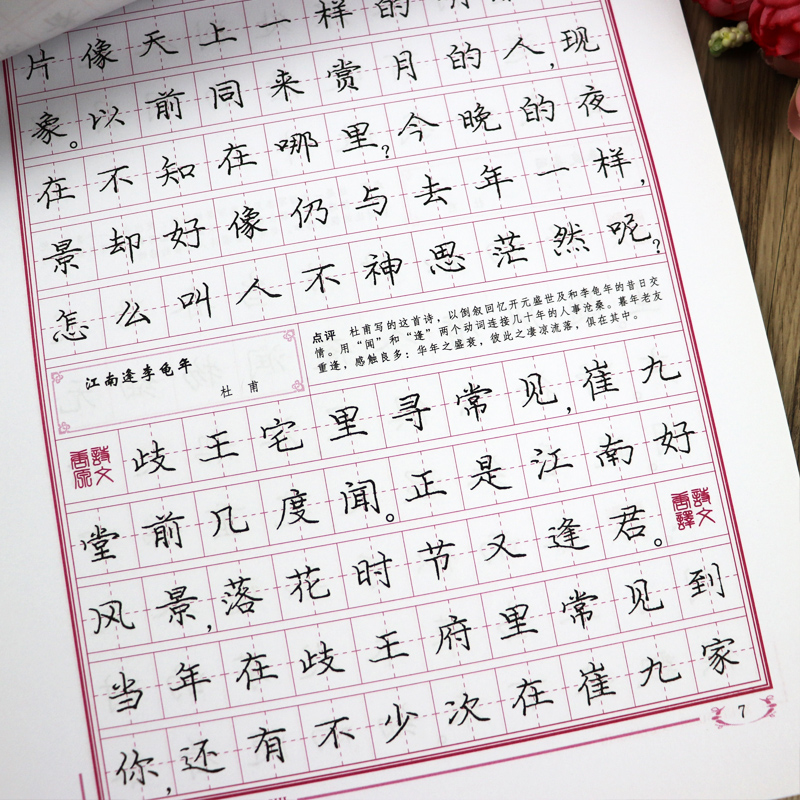 片像天上一样的
象。以前同来赏月的人,现
在不知在哪里?今晚的夜
景却好像仍与去年一样,
怎么叫人不神思茫然呢?
江南逢李龟年
杜甫
点评 杜甫写的这首诗，以倒叙回忆开元盛世及和李龟年的昔日交
情。用“闻”和“逢”两个动词连接几十年的人事沧桑。暮年老友
重逢，感触良多：华年之盛衰，彼此之凄凉流落，俱在其中。
唐诗原文
歧王宅里寻常见,崔九
堂前几度闻。正是江南好
风景,落花时节又逢君。
唐诗译文
当年在歧王府里常见到
你,还有不少次在崔九家
7